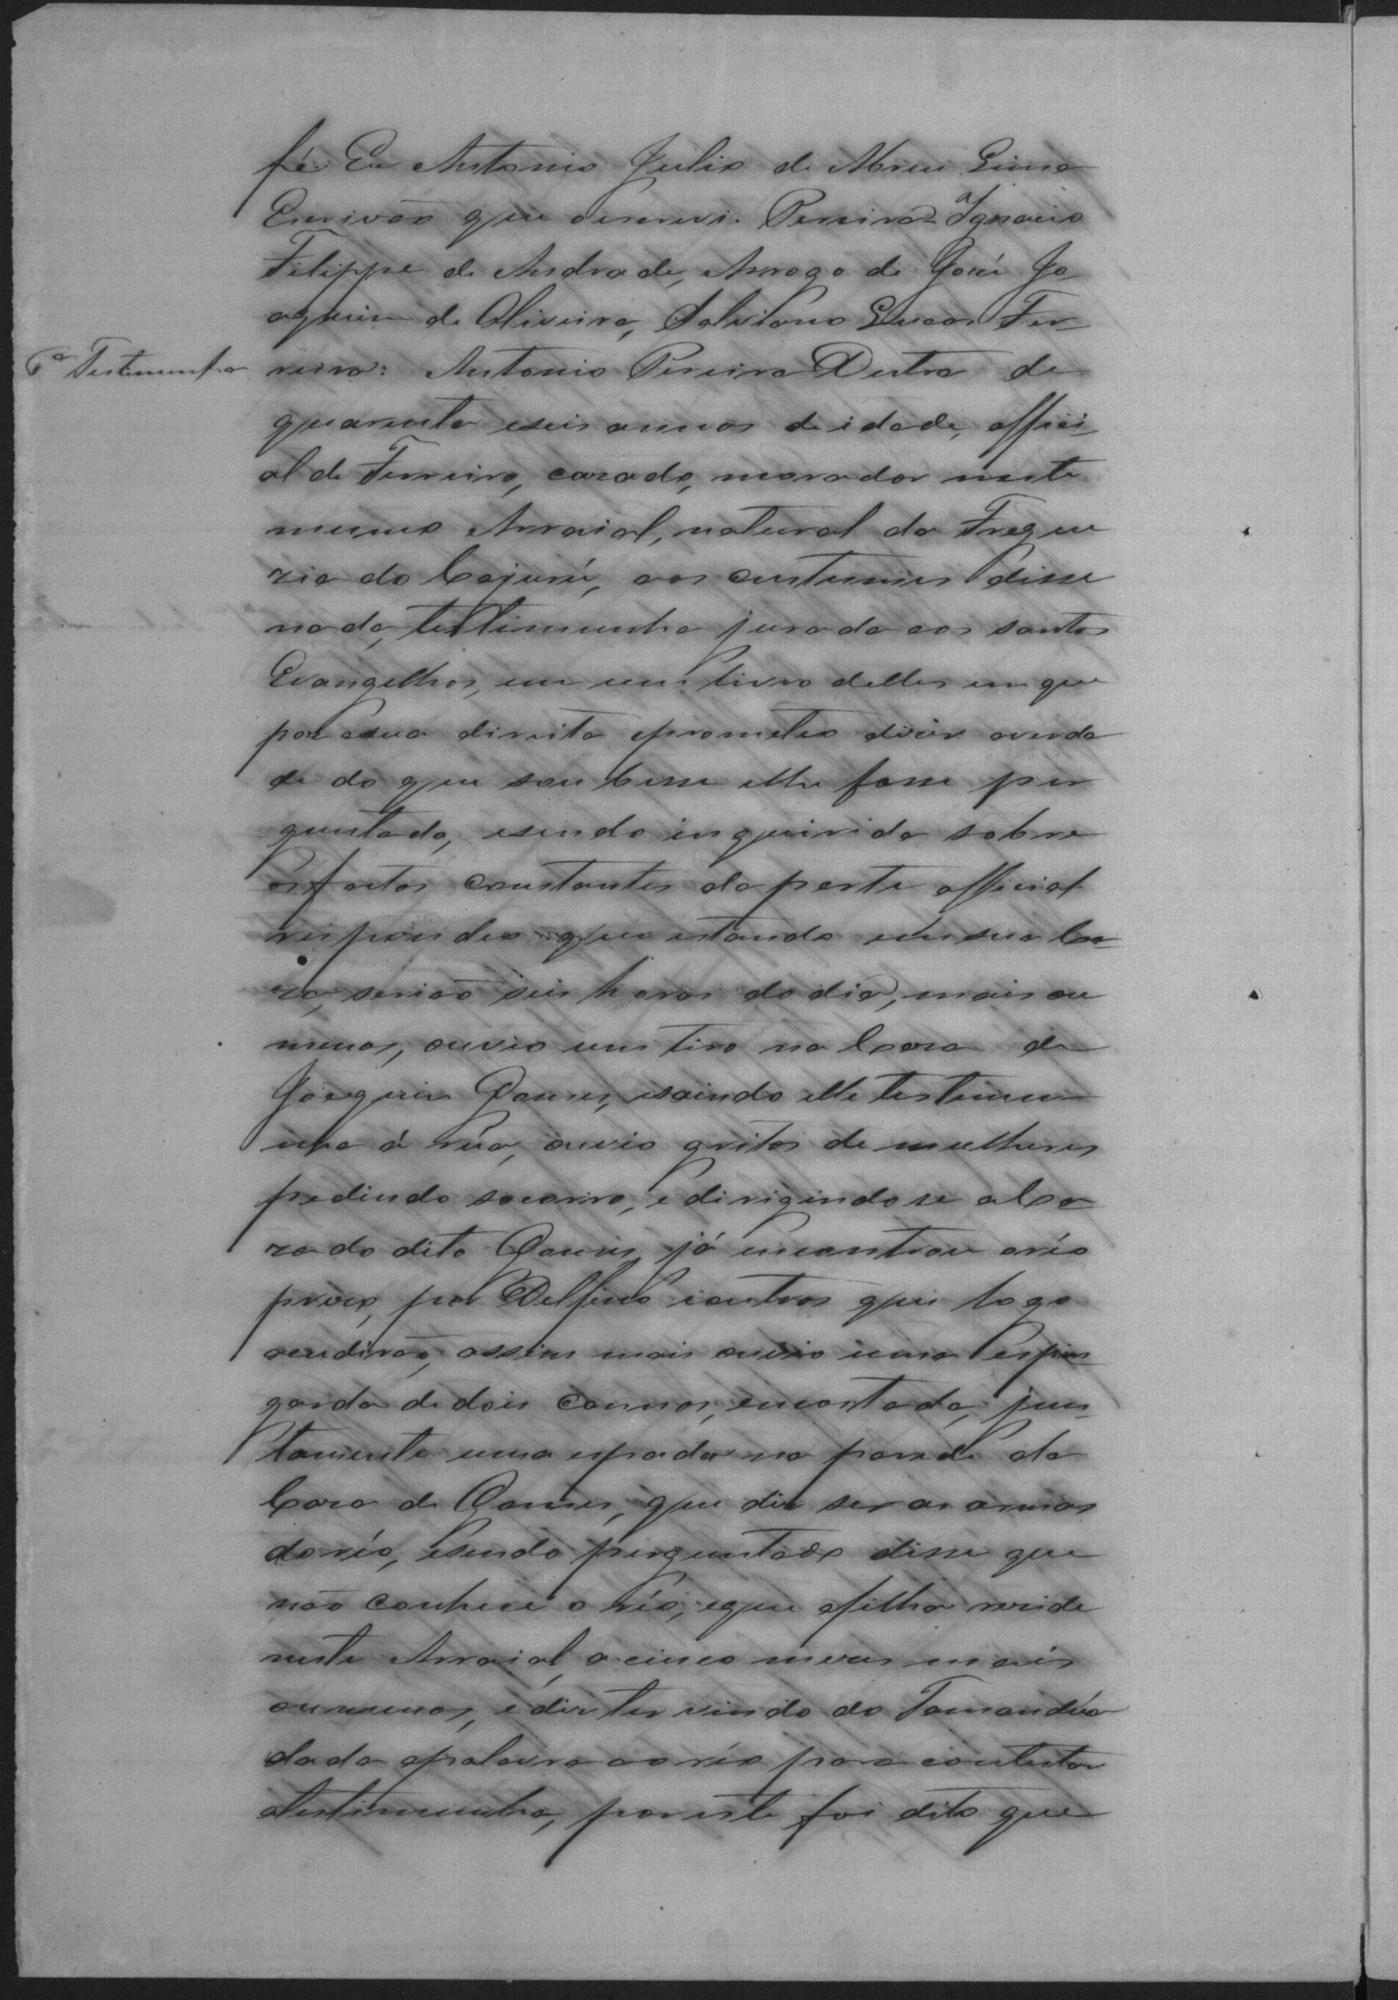 fé Eu Antonio Julio de Abreu Lima
Escrivão que oescrevi. Pereira = Ignacio
Filippe de Andrade, Arrogo de José Jo
aquim de Oliveira, Salviano Lucas Fer
reira: Antonio Pereira Dutra de
6ª Testemunha
quarenta eseis annos de idade, offici
al de Ferreiro, cazado, morador neste
mesmo Arraial, natural da Fregue
zia do Cajurú, aos custumes disse
nada, testimunha jurada aos santos
Evangelhos, em um livro delles em que
poz asua direita eprometeo dizer averda
de do que soubesse elhe fosse per
guntado, esendo inquirida sobre
osfactos constantes daparte official
respondeo que estando em sua Ca
za, serião seis horas do dia, mais ou
menos, ouvio um tiro na Caza de
Joaquim Gomes, esaindo elle testemu
nha á rúa, ouvio gritos de mulheres
pedindo socorro, e dirigindose aCa
za do dito Gomes já encontrou oréo
prezo, por Delfino eoutros que logo
acudirão, assim mais ouvio uma espin
garda de dois cannos, encostada, jun
tamente uma espada na parede da
Caza de Gomes, que diz ser as armas
doréo, esendo perguntado disse que
não conhece o réo, eque afilha rezide
neste Arraial, a cinco mezes mais
oumenos, e diz ter vindo do Tamandúa
dada apalavra aoréo para contestar
atestimunha, poreste foi dito que